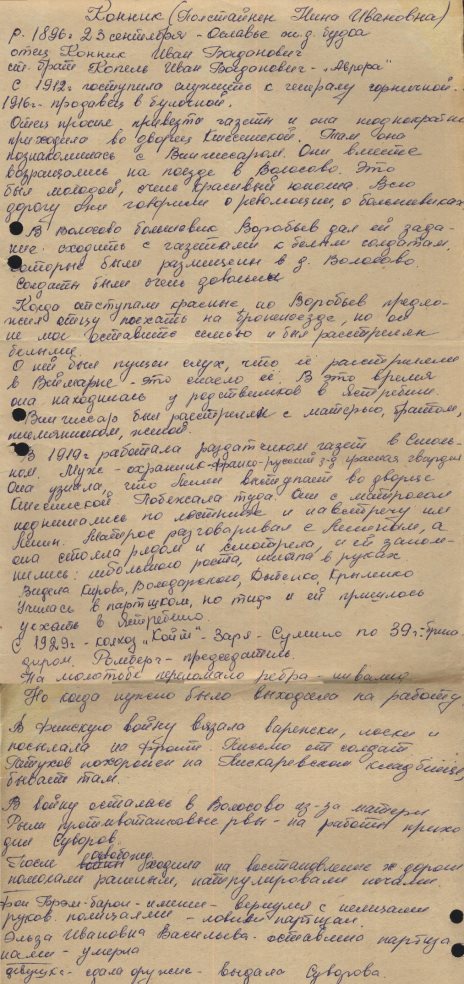 Конник (Полстайнен Нина Ивановна)
р. 1896г 23 сентября - Ославье ж.д. будка
отец Конник Иван Богданович
ст. брат Копель Иван Богданович - „Аврора"
С 1912г поступила служить к генералу горничной.
1916г - продавец в булочной.
Отец просил привезти газеты и она неоднократно
приходила во дворец Кшесинской. Там она
познакомилась с Вингиссаром. Они вместе
возвращались на поезде в Волосово. Это
был молодой, очень красивый юноша. Всю
дорогу они говорили о революции, о большевиках
В Волосово большевик Воробьев дал ей зада-
ние: сходить с газетами к белым солдатам,
которые были размещены в д. Волосово.
Солдаты были очень довольны
Когда отступали красные, то Воробьев предло-
жил отцу поехать на бронепоезде, но он
не мог оставить семью и был расстрелян
белыми.
О ней был пущен слух, что её расстреляли
в Ваймарне - это спасло её. В это время
она находилась у родственников в Ястребино.
Вингиссар был расстрелян с матерью, братом,
племянником, женой.
В 1919г работала раздатчиком газет в Смоль-
ном. Муж - охранник франко-русский з-д красная гвардия
Она узнала, что Ленин выступает во дворце
Кшесинской. Побежала туда. Они с матросом
поднимались по лестнице и навстречу им
Ленин. Матрос разговаривал с Лениным, а
она стояла рядом и смотрела, и ей запом-
нились: небольшого роста, шапка в руках
Видела Кирова, Володарского, Дыбенко, Крыленко
Училась в партшколе, но тиф и ей пришлось
уехать в Ястребино.
С 1929г - колхоз „Койт" - Заря - Сумино по 39г. брига-
диром. Ромберг - председатель.
На молотьбе переломало ребра - инвалид.
Но когда нужно было выходила на работу
В финскую войну вязала варежки, носки и
посылала на фронт. Письмо от солдат
похоронен на Пискаревском кладбище,
бывает там.
В войну осталась в Волосово из-за матери
Рыли противотанковые рвы - на работы прихо
дил Суворов.
После освобожд. ходила на восстановление ж дороги
помогали раненым, патрулировали ночами.
Фон барон - имение - вернулся с немцами
руков. полицаями - ловили партизан.
Эльза Ивановна Васильева - оставлена партиза
нами - умерла
девушка - сдала оружие - выдала Суворова.